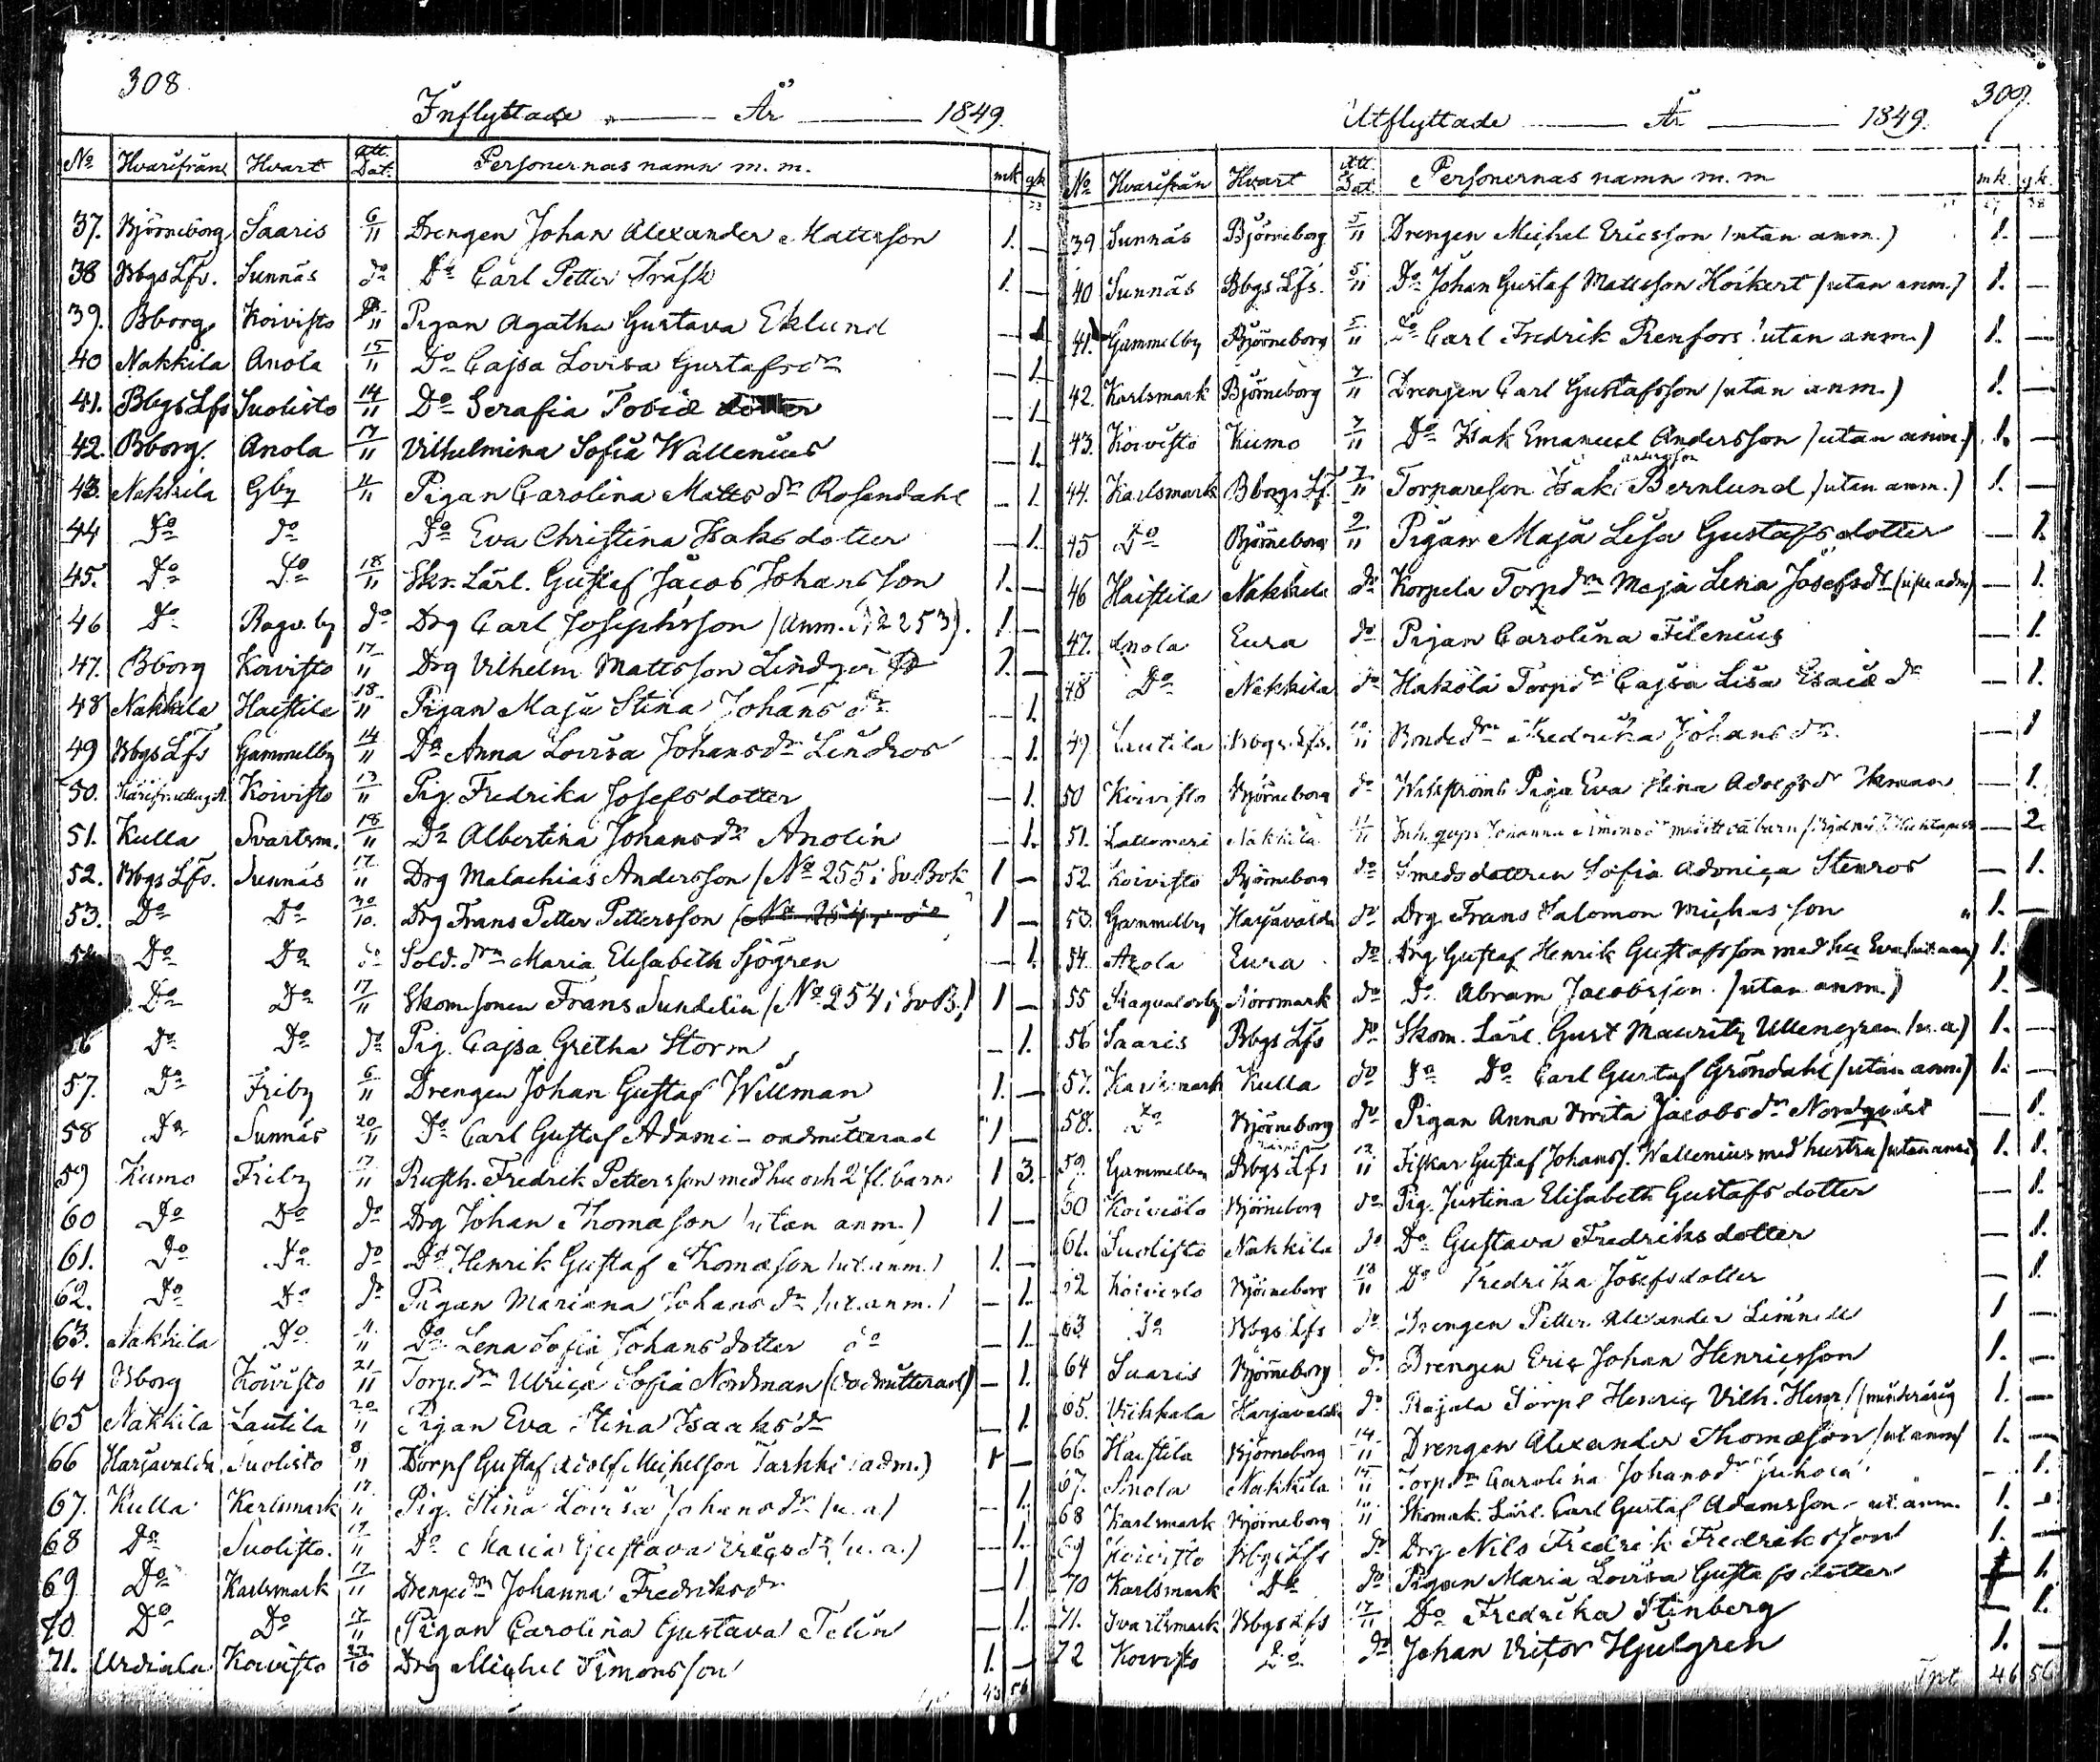 308.
Inflyttade År 1849.
No Hvarifrån Hvart Att. Dat. Personernas namn m. m. mk qk
37. Björneborg Saaris 6/11 Drengen Johan Alexander Mattsson 1. —
38 Bbgs Lfs. Sunnäs do Do Carl Petter Träsk 1. —
39. Bborg. Koivisto 11 Pigan Agatha Gustava Eklund — 1
40 Nakkila Anola 15/11 Do Cajsa Lovisa Gustafsdr — 1.
41. Bbgs Lfs Suolisto 14/11 Do Serafia Tobiæ dotter — 1.
42. Bborg. Anola 17/11 Vilhelmina Sofia Wallenius — 1.
43. Nakkila Gby 11/11 Pigan Carolina Matts dr Rosendahl — 1.
44 Do do Do Eva Christina Isaks dotter — 1.
45. Do Do 18/11 Skr. Lärl. Gustaf Jacob Johansson 1. —
46 Do Ragv. by do Drg Carl Josephsson (Anm. 2253). 1. —
47. Bborg Koivisto 17/11 Drg Vilhelm Mattsson Lindqvist 1. —
48 Nakkila Haistila 18/11 Pigan Maja Stina Johans dr — 1.
49 Bbgs Lfs Gammelby 14/11 Do Anna Lovisa Johansdr Lindros — 1.
50. Koivisto 13/11 Pig. Fredrika Josefsdotter — 1.
51. Kulla Svartsm. 18/11 Do Albertina Johansdr Anolin — 1.
52. Bbgs Lfs. Sunnäs 17/11 Drg Malachias Andersson (No 255 i Sv. Bok 1 —
53. Do Do 30/10. Drg Frans Petter Pettersson (No 254, do 1 —
54 Do Do do Sold. drn Maria Elisabeth Sjögren — 1.
Do Do 17/11 Skom sonen Frans Sundelin (No 254 i Sv B.) 1 —
Do Do do Pig. Cajsa Gretha Storm — 1.
57. Do Friby 6/11 Drengen Johan Gustaf Willman 1. —
58 Do Sunnäs 20/11 Do Carl Gustaf Adami - oadmitterad 1 —
59 Kumo Friby 17/11 Rusth. Fredrik Pettersson med hu och 2 fl. barn 1 3.
60 Do Do do Drg Johan Thomasson (utan anm.) 1 —
61. Do Do do Do Henrik Gustaf Thomasson (ut. anm.) 1. —
62. Do Do do Pigan Mariana Johans dr (ut. anm.) — 1.
63. Nakkila Do 11/11 Do Lena Sofia Johans dotter do — 1.
64 Bborg Koivisto 21/11 Torp. drn Ulrica Sofia Nordman (oadmitterad) — 1.
65 Nakkila Lautila 20/11 Pigan Eva Stina Isaaks dr — 1.
66 Harjavalda Suolisto 8/11 Torps Gustaf Adolf Michelson Tarkki (adm.) 1 —
67. Kulla Karlsmark 17/11 Pig. Stina Lovisa Johans dr (u. a) — 1.
68 Do Suolisto. 17/11 Do Maria Gustava Ericsdr (u. a.) — 1.
69 Do Karlsmark 17/11 Drengedrn Johanna Fredriksdr — 1.
70. Do Do 17/11 Pigan Carolina Gustava Telin — 1.
71. Urdiala Koivisto 27/10 Drg Michel Simonsson 1. —
43 56
309.
Utflyttade År 1849.
No Hvarifrån Hvart Att. Dat. Personernas namn m. m mk. qk.
39 Sunnäs Björneborg 5/11 Drengen Michel Ericsson (utan anm.) 1. —
40 Sunnäs Bbgs Lfs. 5/11 Do Johan Gustaf Mattsson Hoikert (utan anm.) 1. —
41. Gammelby Björneborg 5/11 Do Carl Fredrik Renfors (utan anm.) 1. —
42. Karlsmark Björneborg 7/11 Drengen Carl Gustafsson (utan anm.) 1. —
43. Koivisto Kumo 7/11 Do Isak Emanuel Andersson (utan anm.) 1. —
44. Karlsmark Bborgs Lf. 7/11 Torpareson Isak Andersson Bernlund (utan anm.) 1. —
45 Do Björneborg 9/11 Pigan Maja Lisa Gustafsdotter — 1.
46 Haistila Nakkila do Korpela Torpdrn Maja Lena Josefsdr — 1.
47. Anola Eura do Pigan Carolina Filenius — 1.
48 Do Nakkila do Hakola Torpdr Cajsa Lisa Esaiæ dr — 1.
49 Lautila Bbgs. Lfs. 10/11 Bondedrn Fredrika Johans dr. — 1
50 Koivisto Björneborg do Piga Eva Stina Adolfsdr — 1.
51. Lattomeri Nakkila 11/11 Johanna Simonsdr med ett oä barn — 2.
52. Koivisto Björneborg do Smedsdottren Sofia Adonica Stenros — 1.
53. Gammelby Harjavalda do Drg Frans Salomon Michasson 1. —
54. Anola Eura do Drg Gustaf Henrik Gustafsson med hu Eva (ut. anm) 1. 1.
55 Ragvaldsby Norrmark do Do Abram Jacobsson (utan anm.) 1. —
56 Saaris Bbgs Lfs do Skom. Lärl. Gust Mauritz Ullengren (u. a) 1. —
57. Karlsmark Kulla do Do Do Carl Gustaf Gröndahl (utan anm.) 1. —
58. Do Björneborg do Pigan Anna Brita Jacobs dr Nordqvist — 1.
59 Gammelby Bbgs Lfs 12/11 Fiskar Gustaf Johanss. Wallenius med hustru (utan anm) 1. 1.
60 Koivisto Björneborg do Pig. Justina Elisabeth Gustafsdotter — 1.
61. Suolisto Nakkila do Do Gustava Fredriks dotter — 1.
62 Koivisto Björneborg 13/11 Do Fredrika Josefsdotter — 1.
63. Do Bbgs Lfs do Drengen Petter Alexander Limnell 1 —
64 Saaris Björneborg do Drengen Eric Johan Henricsson 1. —
65. Viikkala Harjavalda do Rajala Torps Henric Vilh. Henr. (minderårig 1. —
66 Haistila Björneborg 14/11 Drengen Alexander Thomasson (ut anm) 1. —
67. Anola Nakkila 15/11 Torpdrn Carolina Johansdr Juhola — 1.
68 Karlsmark Björneborg 11 Skomak. Lärl. Carl Gustaf Adamsson - ut. anm. 1. —
69 Koivisto Bbgs Lfs do Drg Nils Fredrik Fredriksson 1. —
70 Karlsmark Do do Pigan Maria Lovisa Gustafsdotter — 1.
71. Svartsmark Bbgs Lfs 17/11 Do Fredrika Stenberg — 1.
72 Koivisto Do do Johan Victor Hjulgren 1. —
Tpt. 46 56